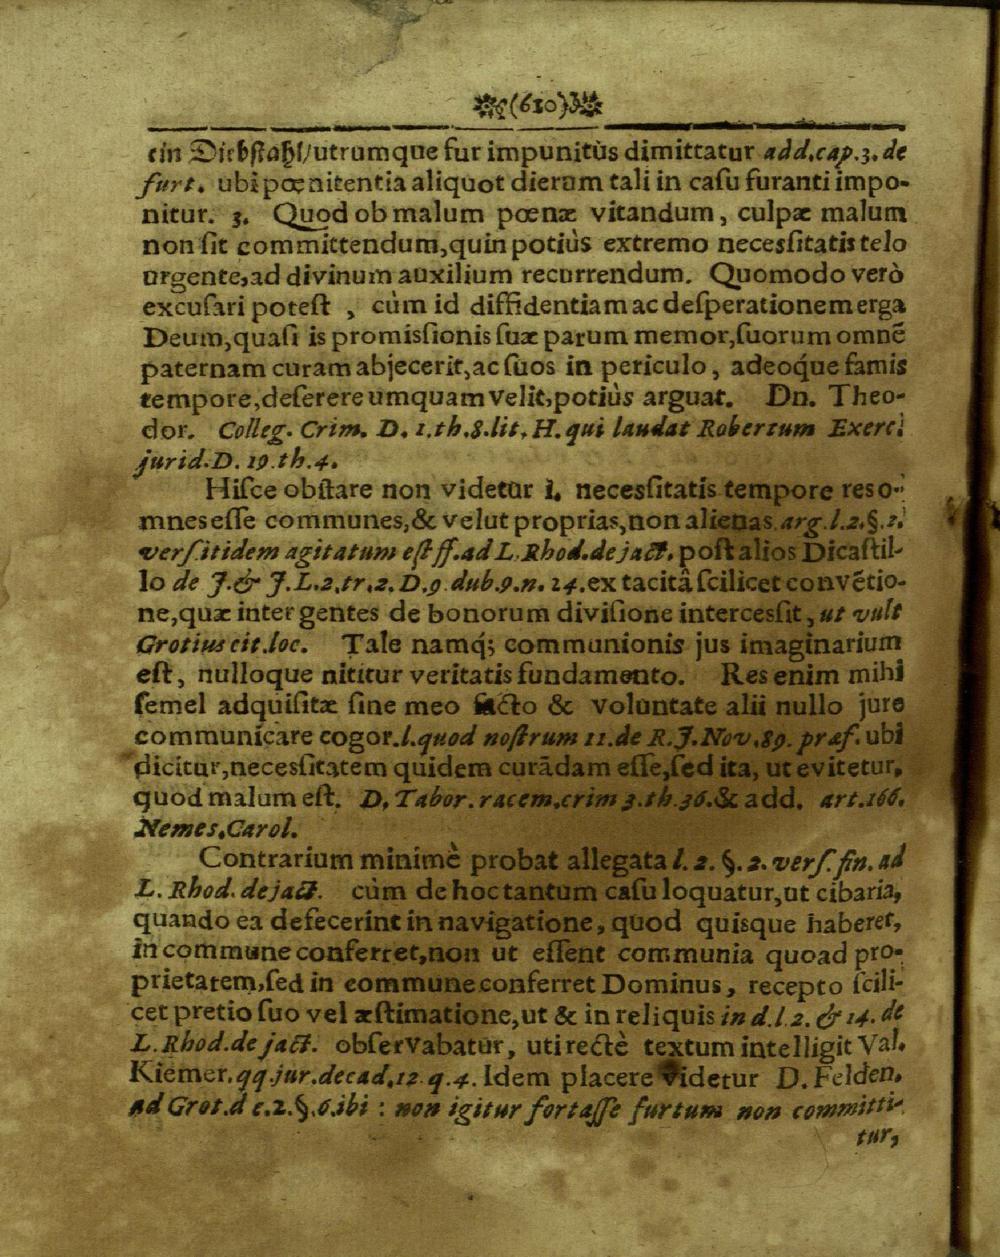 (610)
ein Diebstahl/utrumque fur impunitùs dimittatur add.cap.3.de
furt. ubi pœnitentia aliquot dierum tali in casu furanti impo-
nitur. 3. Quod ob malum pœnæ vitandum, culpæ malum
non sit committendum,quin potiùs extremo necessitatis telo
urgente,ad divinum auxilium recurrendum. Quomodo verò
excusari potest , cùm id diffidentiam ac desperationem erga
Deum,quasi is promissionis suæ parum memor,suorum omnē
paternam curam abjecerit,ac suos in periculo, adeoque famis
tempore,deserere umquam velit,potiùs arguat. Dn. Theo-
dor. Colleg. Crim. D. 1.th.8.lit. H. qui laudat Robertum Exerc.
jurid.D. 19.th.4.
Hisce obstare non videtur 1. necessitatis tempore res o-
mnes esse communes,& velut proprias,non alienas arg.l.2.§.2.
vers.itidem agitatum est ff.ad L.Rhod.de jact. post alios Dicastil-
lo de J.& J.L.2.tr.2.D.9.dub.9.n. 14.ex tacitâ scilicet convētio-
ne,quæ inter gentes de bonorum divisione intercessit, ut vult
Grotius cit.loc. Tale namq́; communionis jus imaginarium
est, nulloque nititur veritatis fundamento. Res enim mihi
semel adquisitæ sine meo facto & voluntate alii nullo jure
communicare cogor.l.quod nostrum 11.de R.J.Nov.89. præf. ubi
dicitur,necessitatem quidem curādam esse,sed ita, ut evitetur,
quod malum est. D. Tabor. racem.crim 3.th.36.& add. art.166.
Nemes.Carol.
Contrarium minimè probat allegata l. 2. §. 2. vers.fin. ad
L. Rhod. de jact. cùm de hoc tantum casu loquatur,ut cibaria,
quando ea defecerint in navigatione, quod quisque haberet,
in commune conferret,non ut essent communia quoad pro-
prietatem,sed in commune conferret Dominus, recepto scili-
cet pretio suo vel æstimatione,ut & in reliquis in d.l.2. & 14. de
L. Rhod.de jact. observabatur, uti rectè textum intelligit Val.
Kiemer.qq.jur.decad.12.q.4. Idem placere videtur D. Felden.
ad Grot.d c.2.§.6.ibi : non igitur fortasse furtum non committi-
tur,